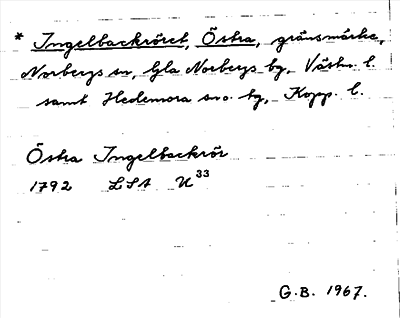 * Ingelbackröret, Östra, gränsmärke,
Norbergs sn, Gla Norbergs bg, Västm. l.
samt Hedemora sno. bg, Kopp. l.
Östra Ingelbackrör
1792 LSA U 33
G.B. 1967.